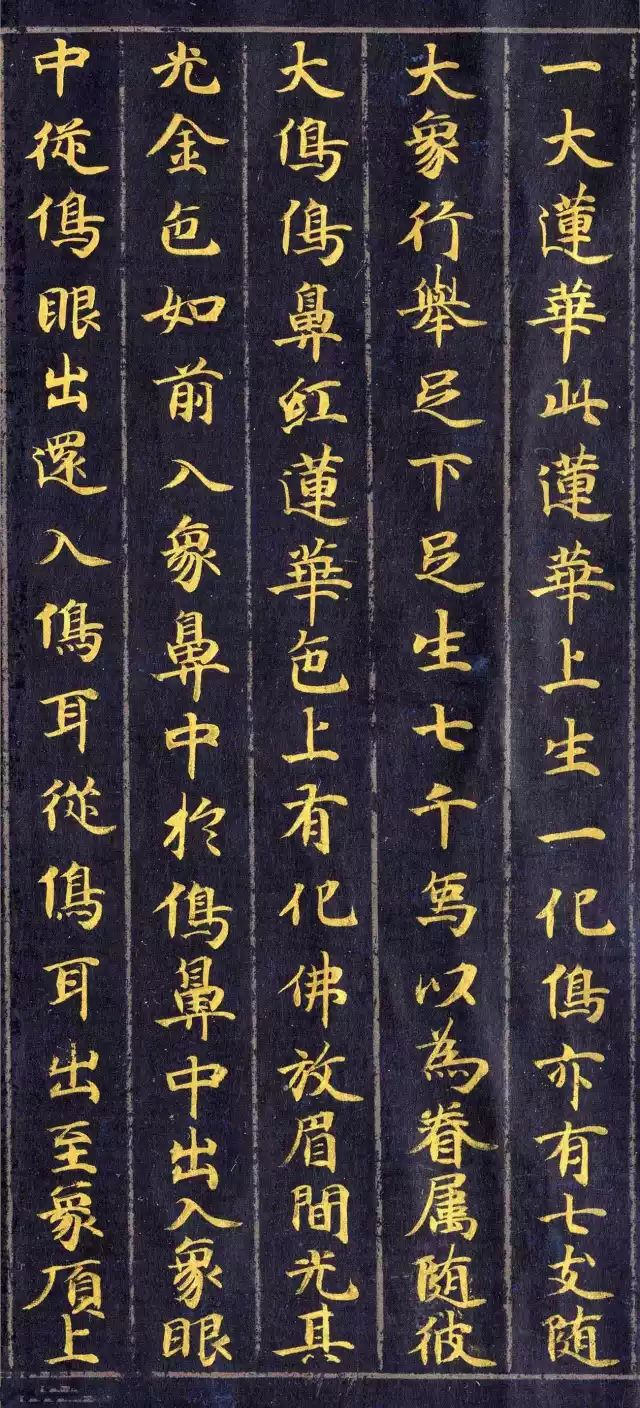 一大蓮華此蓮華上生一化象亦有七支随
大象行舉足下足生七千象以為眷属随彼
大象象鼻紅蓮華色上有化佛放眉間光其
光金色如前入象鼻中於象鼻中出入象眼
中從象眼出還入象耳從象耳出至象頂上